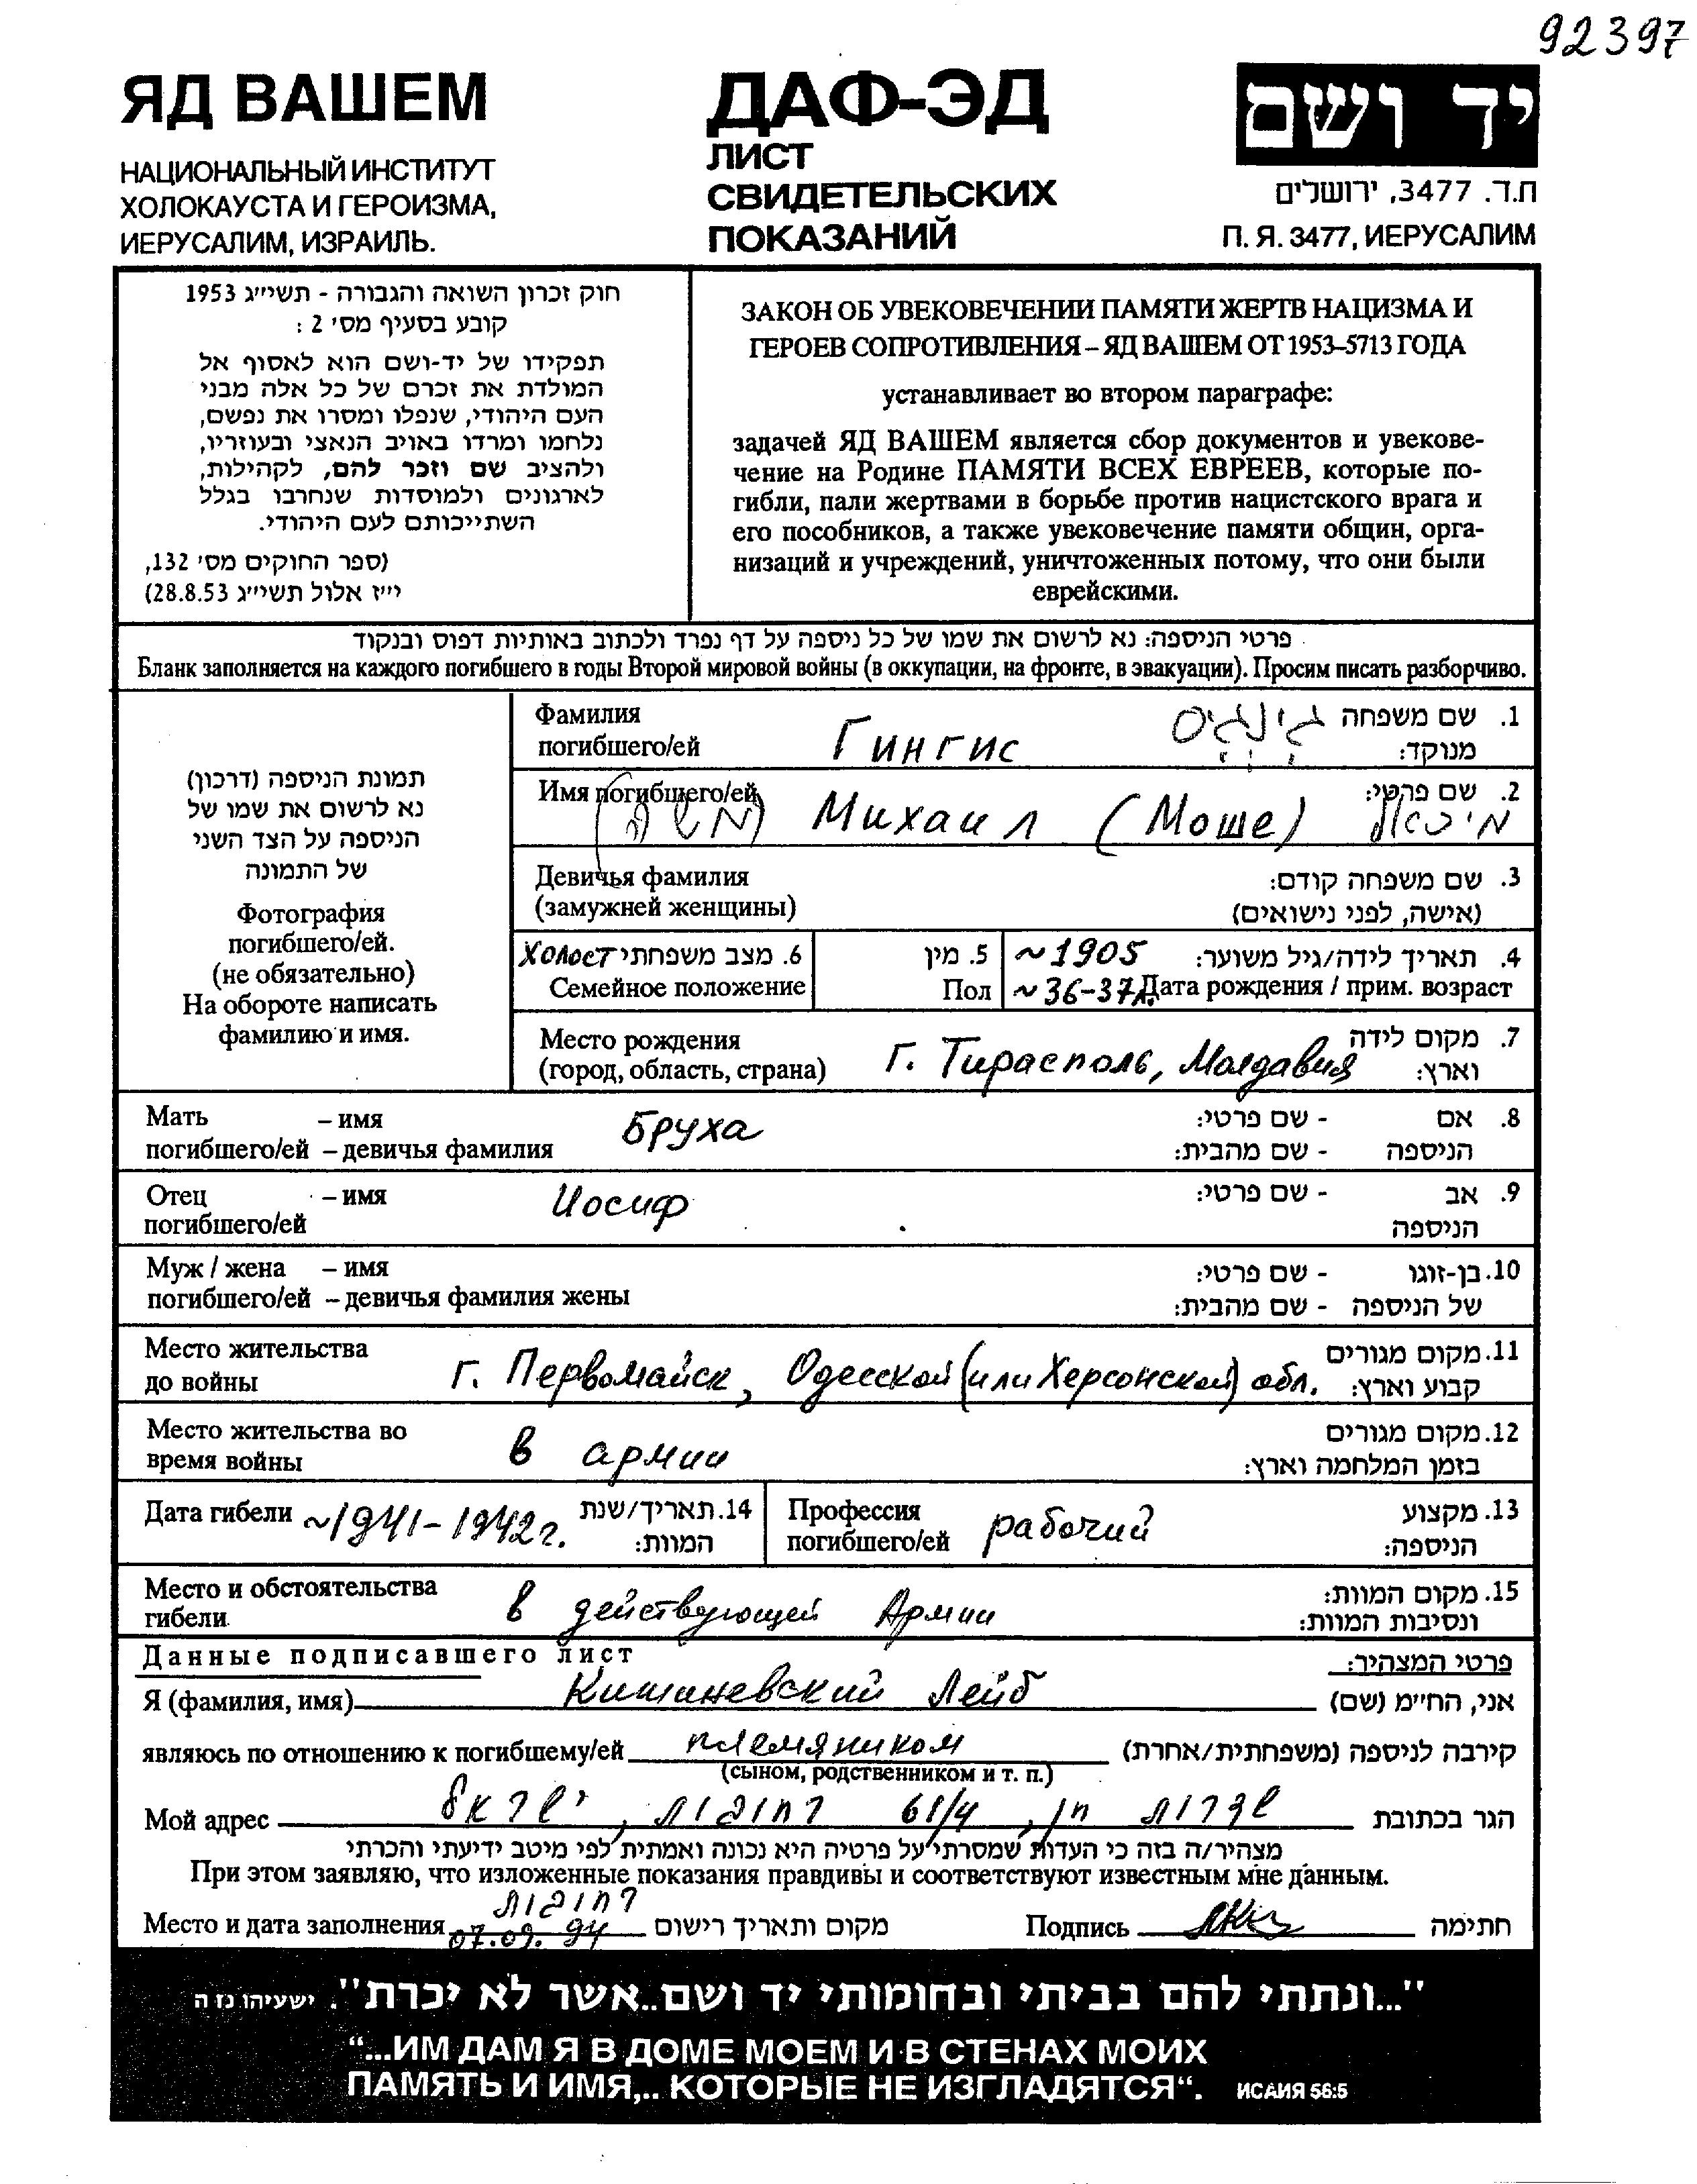 92397
ЯД ВАШЕМ
НАЦИОНАЛЬНЫЙ ИНСТИТУТ
ХОЛОКАУСТА И ГЕРОИЗМА,
ИЕРУСАЛИМ, ИЗРАИЛЬ.
ДАФ-ЭД
ЛИСТ
СВИДЕТЕЛЬСКИХ
ПОКАЗАНИЙ
יד ושם
ת.ד. 3477, ירושלים
П. Я. 3477, ИЕРУСАЛИМ
חוק זכרון השואה והגבורה - תשי״ג 1953
קובע בסעיף מס׳ 2 :
תפקידו של יד-ושם הוא לאסוף אל
המולדת את זכרם של כל אלה מבני
העם היהודי, שנפלו ומסרו את נפשם,
נלחמו ומרדו באויב הנאצי ובעוזריו,
ולהציב שם וזכר להם, לקהילות,
לארגונים ולמוסדות שנחרבו בגלל
השתייכותם לעם היהודי.
(ספר החוקים מס׳ 132,
י״ז אלול תשי״ג 28.8.53)
ЗАКОН ОБ УВЕКОВЕЧЕНИИ ПАМЯТИ ЖЕРТВ НАЦИЗМА И
ГЕРОЕВ СОПРОТИВЛЕНИЯ – ЯД ВАШЕМ ОТ 1953–5713 ГОДА
устанавливает во втором параграфе:
задачей ЯД ВАШЕМ является сбор документов и увекове-
чение на Родине ПАМЯТИ ВСЕХ ЕВРЕЕВ, которые по-
гибли, пали жертвами в борьбе против нацистского врага и
его пособников, а также увековечение памяти общин, орга-
низаций и учреждений, уничтоженных потому, что они были
еврейскими.
פרטי הניספה: נא לרשום את שמו של כל ניספה על דף נפרד ולכתוב באותיות דפוס ובנקוד
Бланк заполняется на каждого погибшего в годы Второй мировой войны (в оккупации, на фронте, в эвакуации). Просим писать разборчиво.
תמונת הניספה (דרכון)
נא לרשום את שמו של
הניספה על הצד השני
של התמונה
Фотография
погибшего/ей.
(не обязательно)
На обороте написать
фамилию и имя.
Фамилия גינגיס 1. שם משפחה
погибшего/ей Гингис מנוקד:
Имя погибшего/ей 2. שם פרטי:
(משה) Михаил (Моше) מיכאל
Девичья фамилия 3. שם משפחה קודם:
(замужней женщины) (אישה, לפני נישואים)
Холост 6. מצב משפחתי 5. מין ~1905 4. תאריך לידה/גיל משוער:
Семейное положение Пол ~36-37л. Дата рождения / прим. возраст
Место рождения 7. מקום לידה
(город, область, страна) г. Тирасполь, Молдавия וארץ:
Мать – имя Бруха 8. אם - שם פרטי:
погибшего/ей – девичья фамилия הניספה - שם מהבית:
Отец – имя Иосиф 9. אב - שם פרטי:
погибшего/ей הניספה
Муж / жена – имя 10. בן-זוגו - שם פרטי:
погибшего/ей – девичья фамилия жены של הניספה - שם מהבית:
Место жительства 11. מקום מגורים
до войны г. Первомайск, Одесской (или Херсонской) обл. קבוע וארץ:
Место жительства во 12. מקום מגורים
время войны в армии בזמן המלחמה וארץ:
Дата гибели ~1941-1942г. 14. תאריך/שנת המוות:
Профессия погибшего/ей рабочий 13. מקצוע הניספה:
Место и обстоятельства 15. מקום המוות:
гибели в действующей Армии ונסיבות המוות:
Данные подписавшего лист פרטי המצהיר:
Я (фамилия, имя) Кишиневский Лейб אני, הח״מ (שם)
являюсь по отношению к погибшему/ей племяником קירבה לניספה (משפחתית/אחרת)
(сыном, родственником и т. п.)
Мой адрес 61/4 הגר בכתובת
מצהיר/ה בזה כי העדות שמסרתי על פרטיה היא נכונה ואמתית לפי מיטב ידיעתי והכרתי
При этом заявляю, что изложенные показания правдивы и соответствуют известным мне данным.
Место и дата заполнения 07.09.94 מקום ותאריך רישום Подпись חתימה
"...ונתתי להם בביתי ובחומותי יד ושם..אשר לא יכרת". ישעיהו נו ה
“...ИМ ДАМ Я В ДОМЕ МОЕМ И В СТЕНАХ МОИХ
ПАМЯТЬ И ИМЯ,.. КОТОРЫЕ НЕ ИЗГЛАДЯТСЯ“. ИСАИЯ 56:5